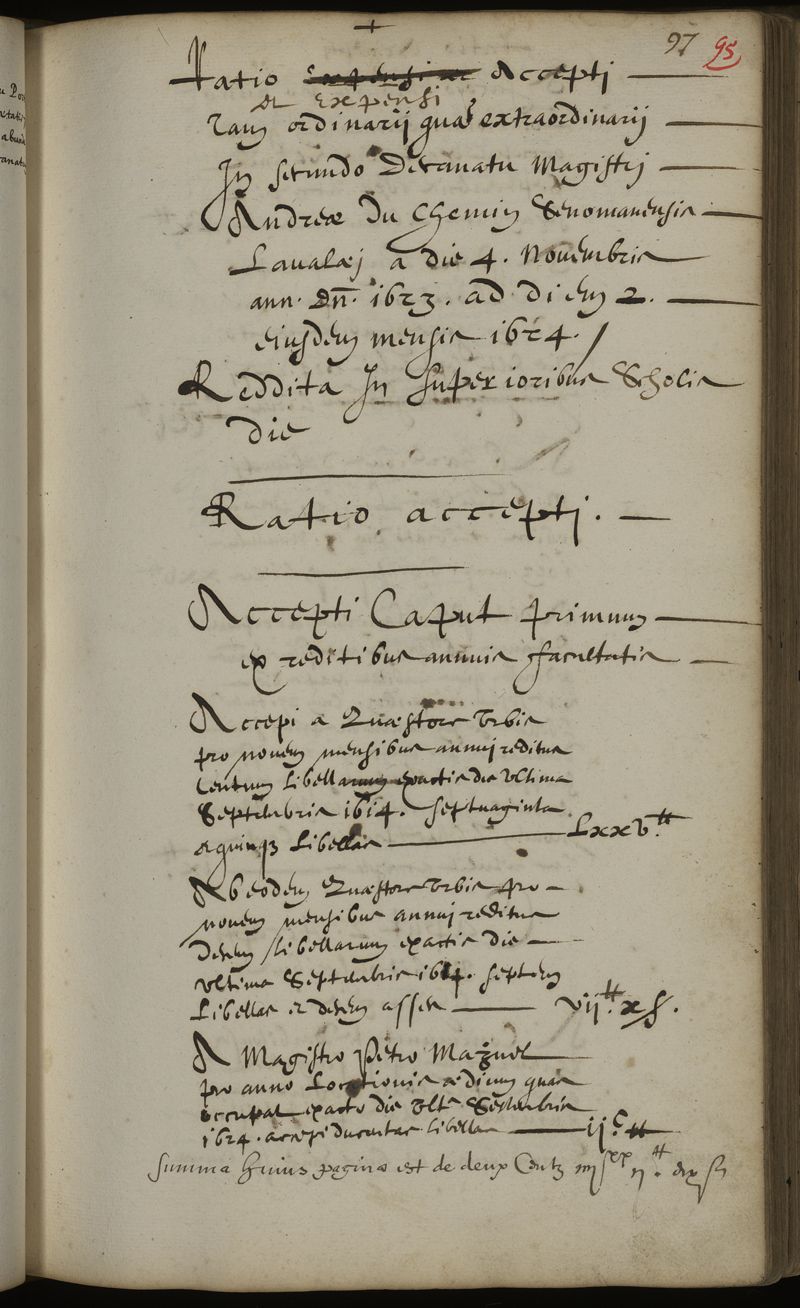 97 95
Ratio expensi et Accepti
et Expensi
Tam ordinarij quam extraordinarij
In secundo Decanatu Magistri
Andreæ Du Chemin Cenomanensis
Lavalæi a die 4. Novembris
ann. Dñ. 1623. ad diem 2.
eiusdem mensis 1624.
Reddita In superioribus Scholis
die
Ratio accepti.
Accepti Caput primum
ex reditibus annuis facultatis
Accepi a Quæstore Urbis
pro novem mensibus annui reditus
Centum libellarum exactis die ultima
Septembris 1614. septuaginta
et quinq3 libellas Lxxv.tt
Ab eodem Quæstore Urbis pro
novem mensibus annui reditus
Decem libellarum exactis die
ultima Septembris 1614. septem
Libellas et decem asses vij.tt x s.
A Magistro Petro Mazuel
pro anno Locationis ædium quas
occupat exacto die ult. Septembris
1624. accepi ducentas libellas ij.C tt
Summa huius paginæ est de deux Centz iiij xx ij.tt dix s